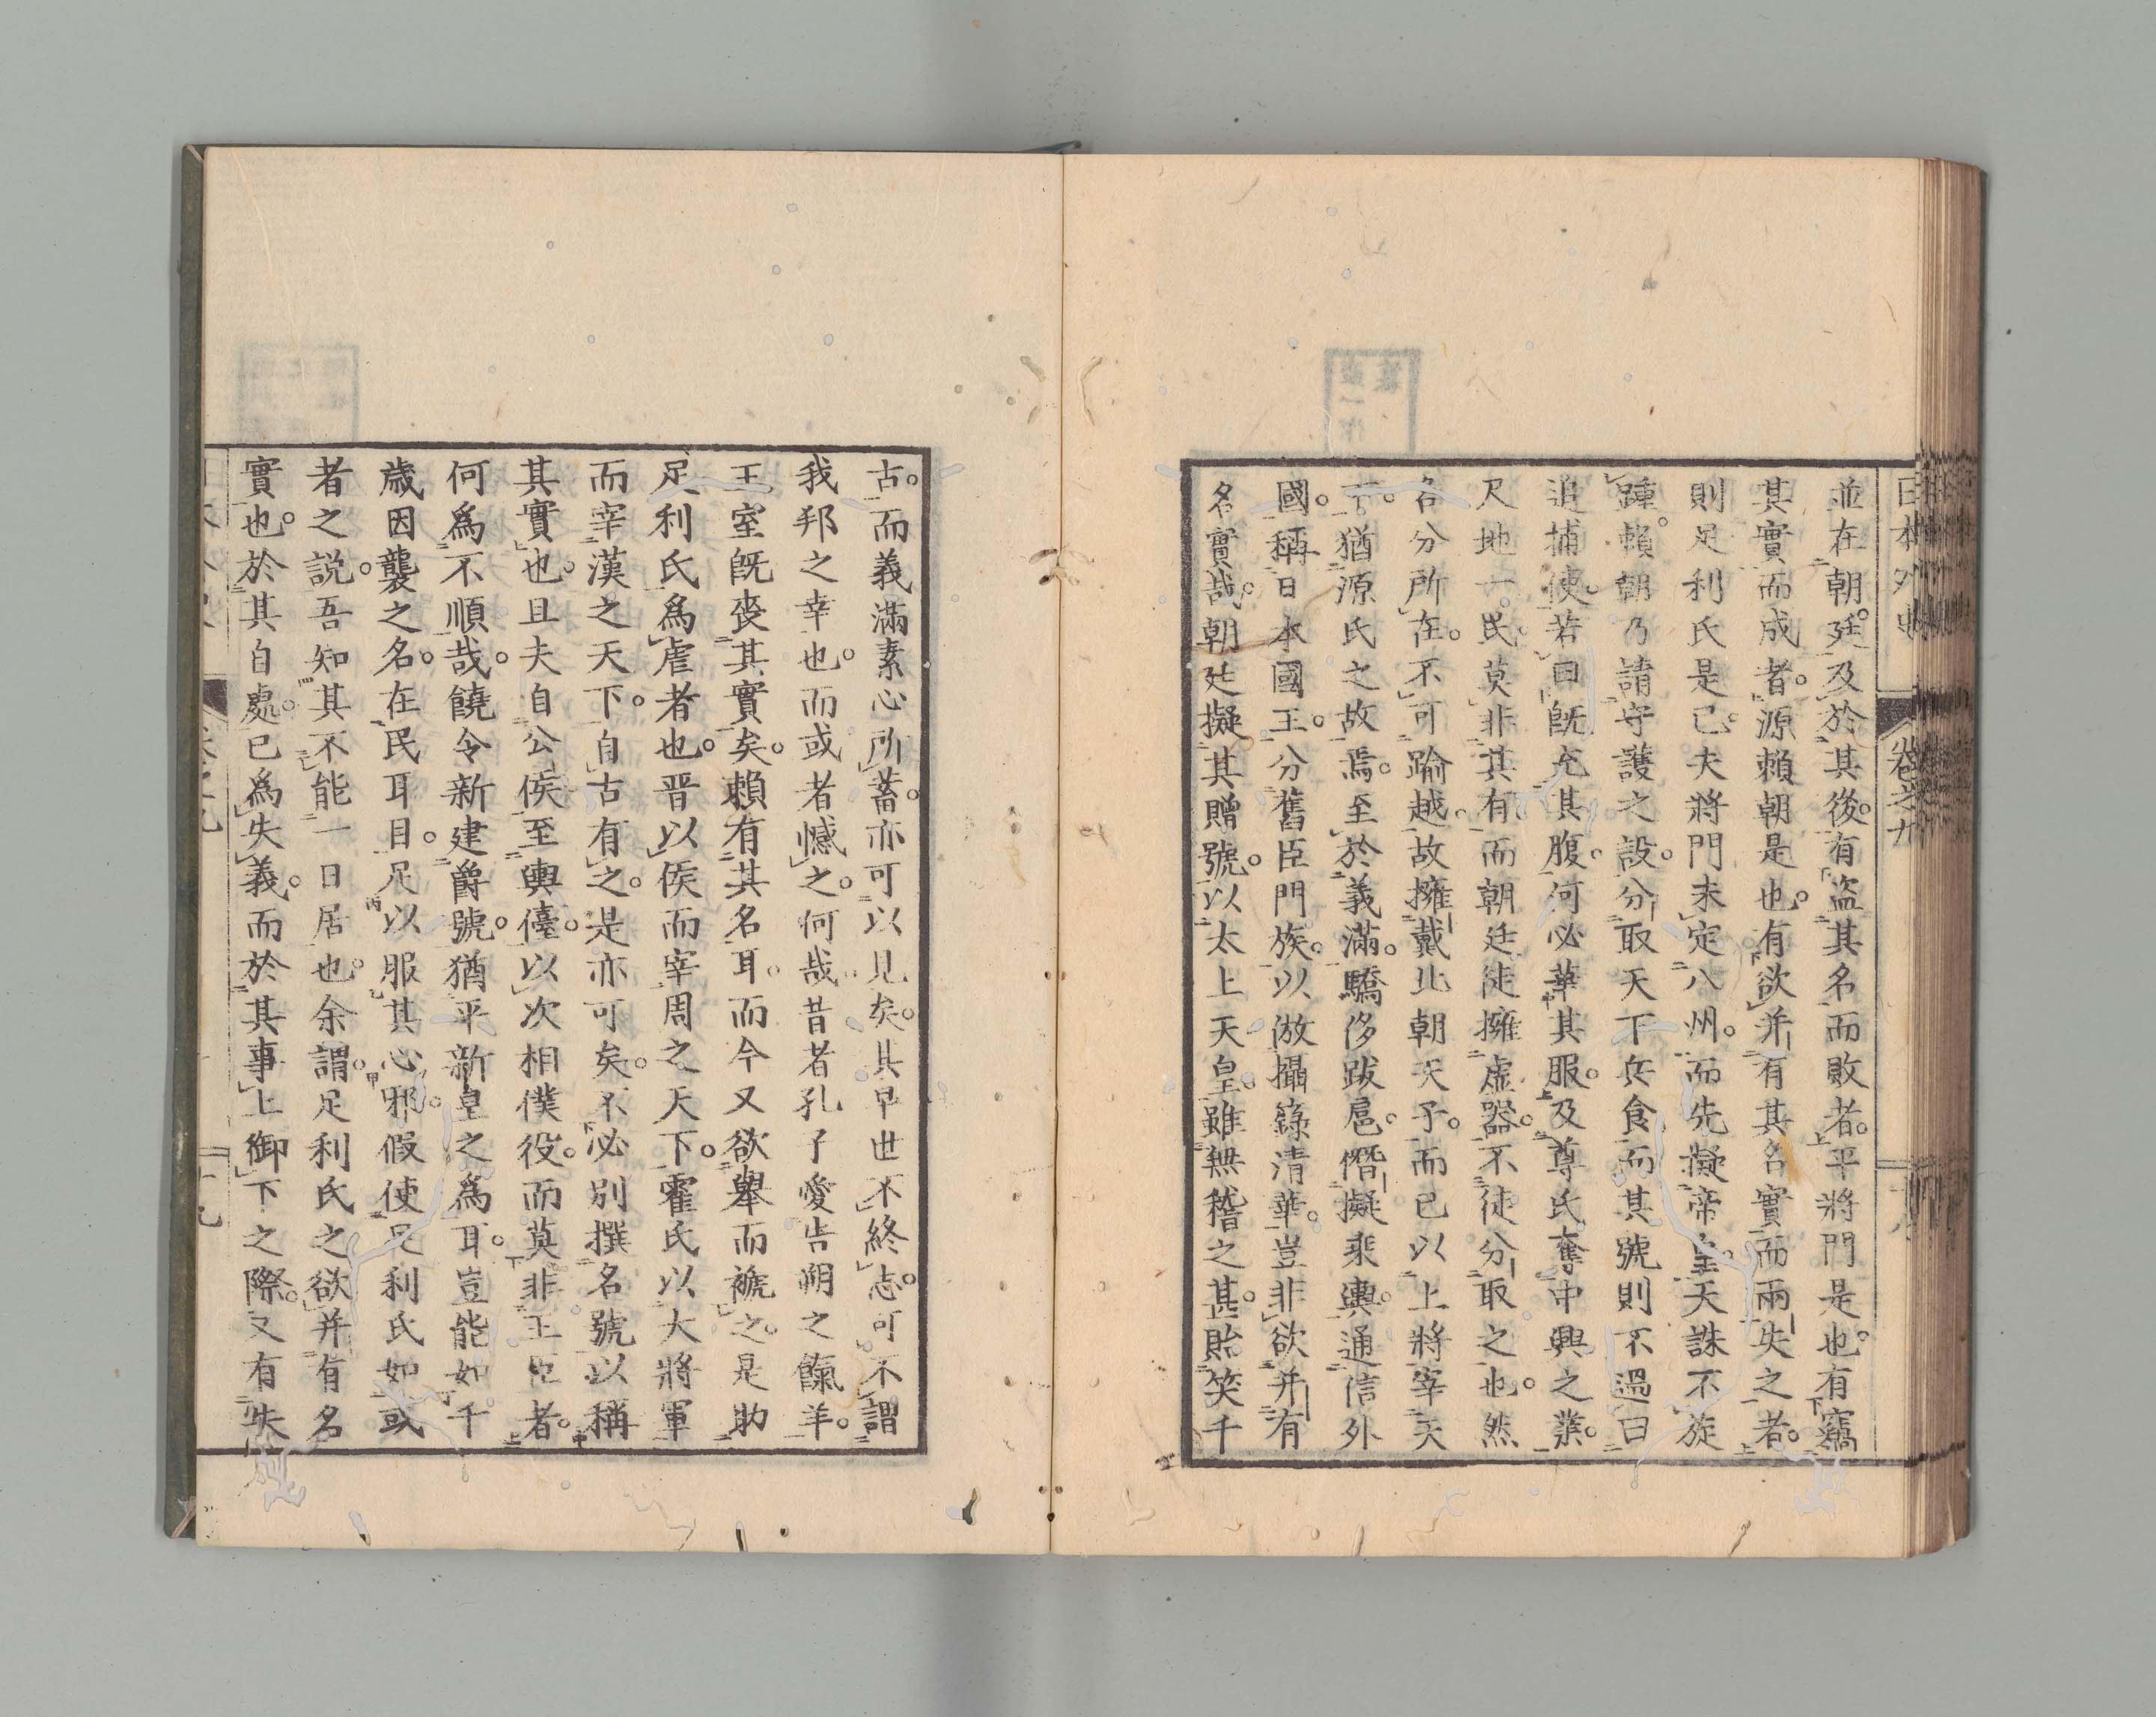 日本外史 卷之九
並在朝廷。及於其後。有盗其名而敗者。平將門是也。有竊
其實而成者。源賴朝是也。有欲并有其名實而兩失之者。
則足利氏是已。夫將門未定八州。而先擬帝皇。天誅不旋
踵。賴朝乃請守護之設。分取天下兵食。而其號則不過曰
追捕使。若曰既充其腹。何必華其服。及尊氏奪中興之業。
尺地一民。莫非其有。而朝廷徒擁虛器。不徒分取之也。然
名分所在。不可踰越。故擁戴北朝天子。而已以上將宰天
下。猶源氏之故焉。至於義滿。驕侈跋扈。僭擬乘輿。通信外
國。稱日本國王。分舊臣門族。以倣攝籙清華。豈非欲并有
名實哉。朝廷擬其贈號。以太上天皇。雖無稽之甚。貽笑千
古。而義滿素心所蓄。亦可以見矣。其早世不終志。可不謂
我邦之幸也。而或者憾之。何哉。昔者孔子愛告朔之餼羊。
王室既喪其實矣。賴有其名耳。而今又欲舉而褫之。是助
足利氏爲虐者也。晋以侯而宰周之天下。霍氏以大將軍
而宰漢之天下。自古有之。是亦可矣。不必別撰名號以稱
其實也。且夫自公侯至輿儓。以次相僕役。而莫非王臣者。
何爲不順哉。饒令新建爵號。猶平新皇之爲耳。豈能如千
歳因襲之名。在民耳目。足以服其心邪。假使足利氏如或
者之説。吾知其不能一日居也。余謂足利氏之欲并有名
實也。於其自處。已爲失義。而於其事上御下之際。又有失